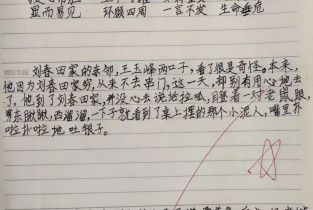 显而易见 环顾四周 一言不发 生命垂危
刘春田家的东邻,王玉峰两口子,看了很是奇怪。本来,
他因为刘春田家穷,从来不去串门,这一天,却别有用心地去
了。他到了刘春田家,并没心去说话拉呱,瞪着一对老鼠眼,
东瞅瞅,西溜溜,一下子就看到了桌上摆的那个小泥人,嘴里扑
啦扑啦地吐银子。